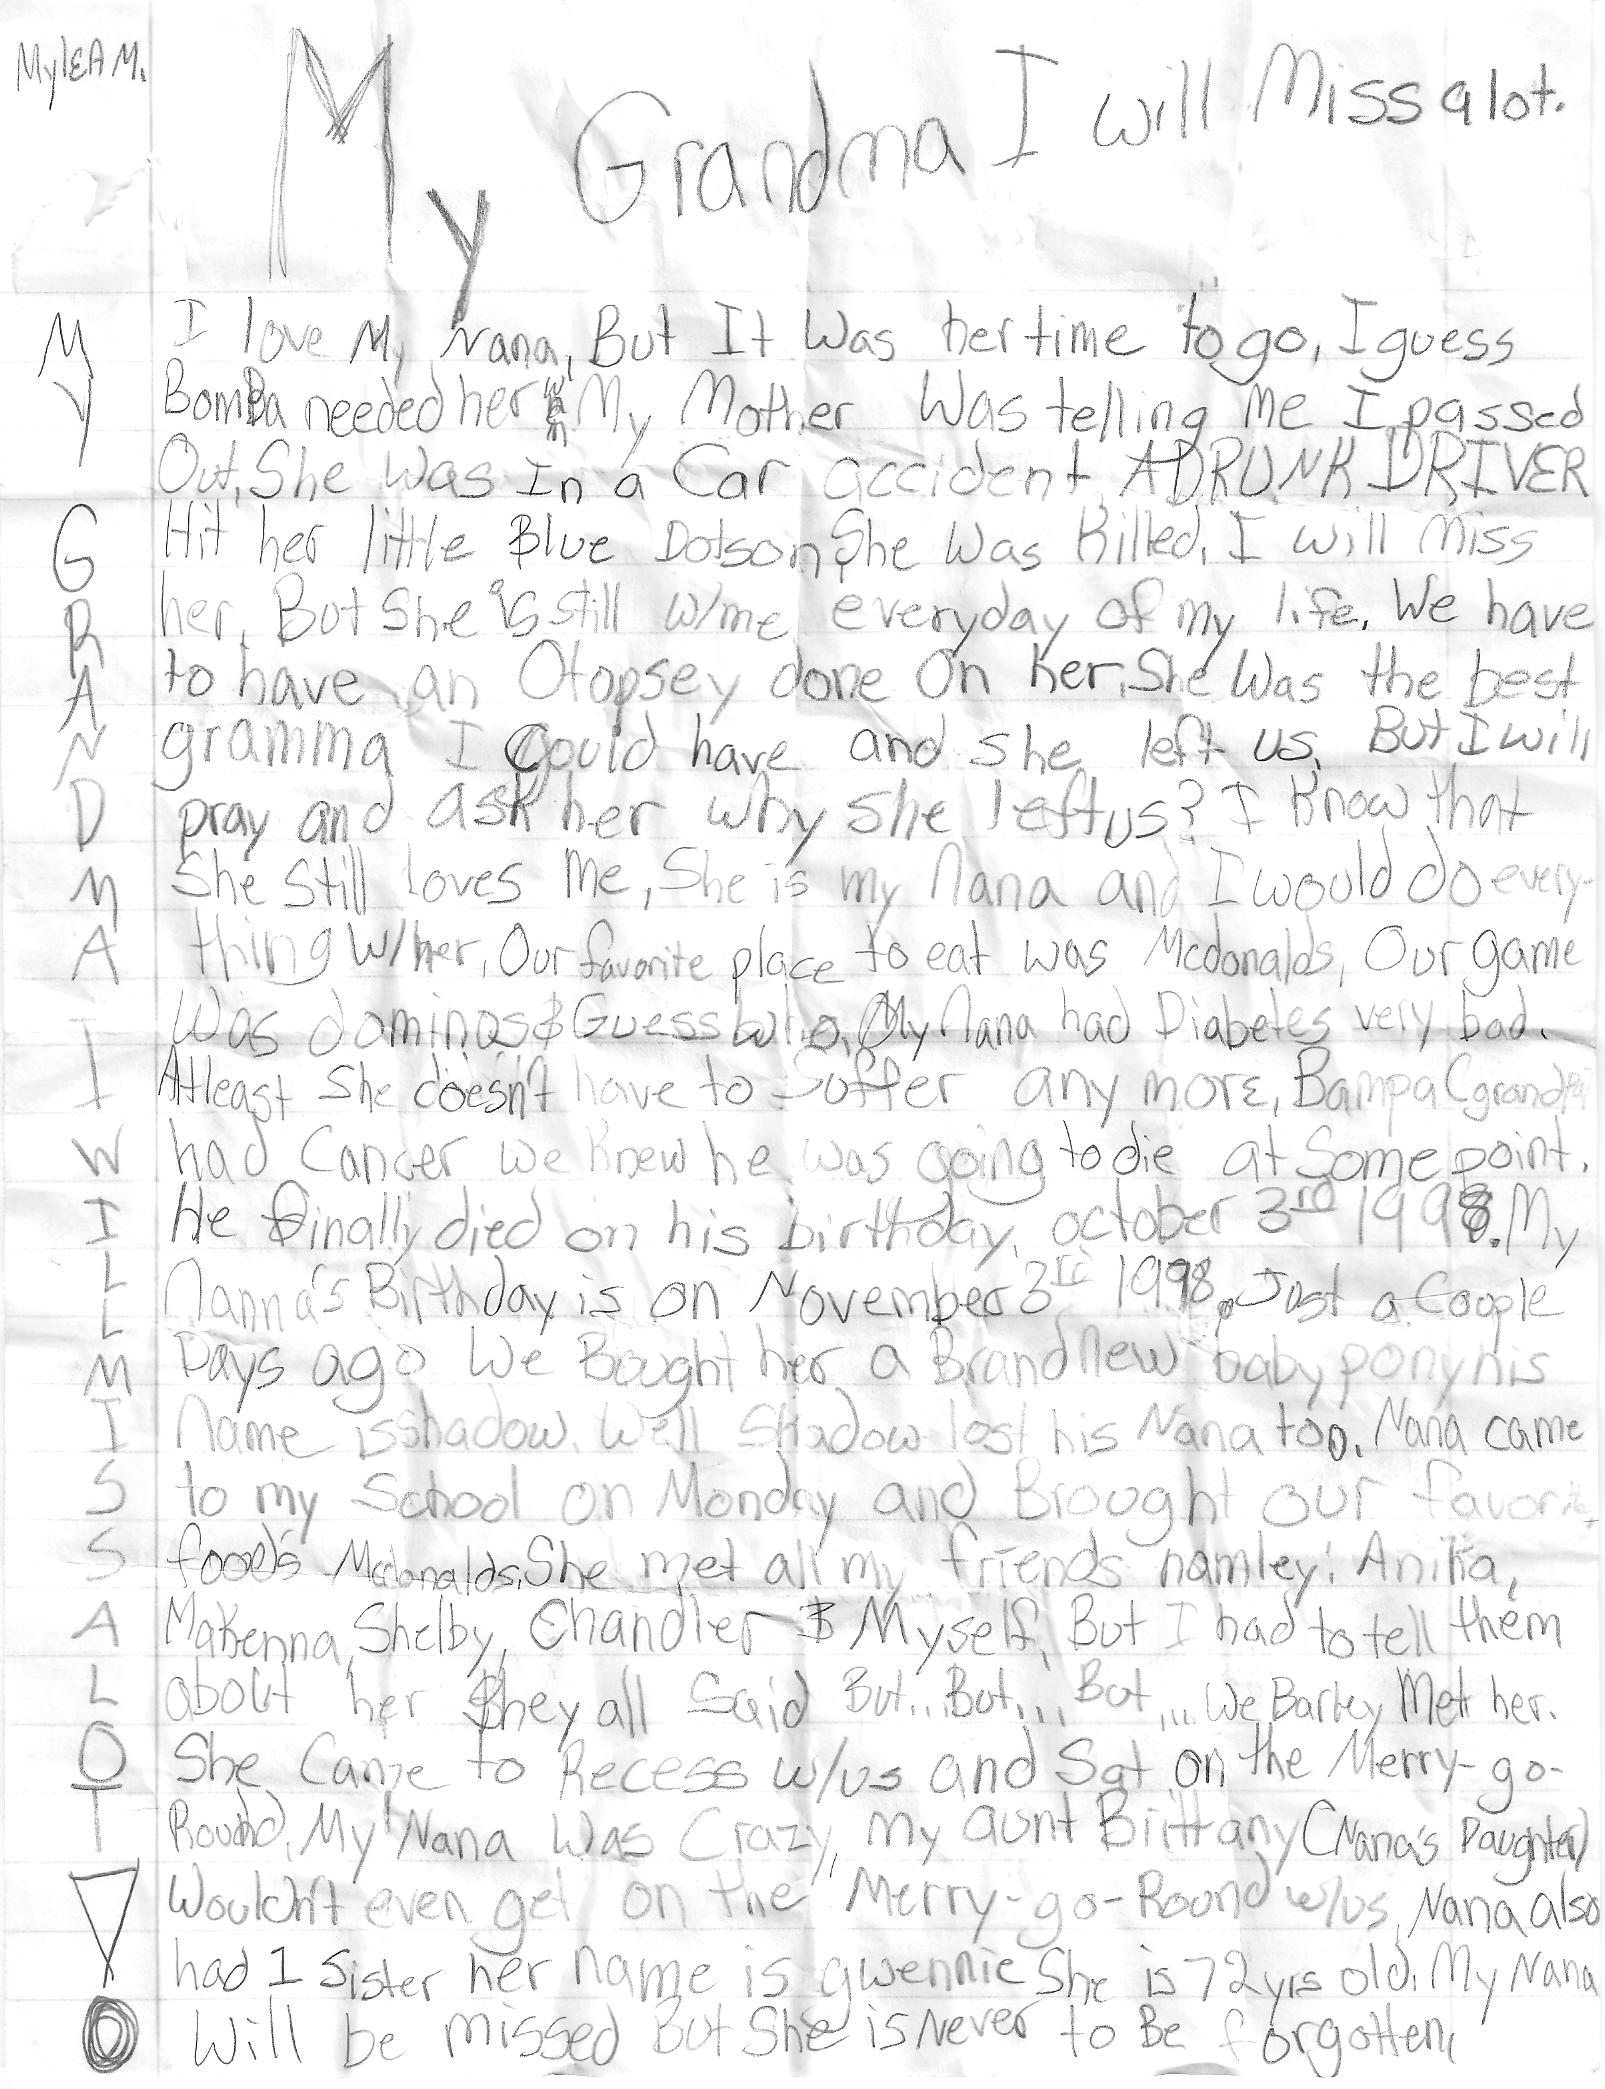 Mylea M.
My Grandma I will Miss alot.
MY GRANDMA I WILL MISS A LOT!
I love My Nana, But It Was her time to go, I guess
Bompa needed her when My Mother Was telling Me I passed
Out, She Was In a Car accident, A DRUNK DRIVER
Hit her little Blue Dotson, She Was Killed, I will miss
her, But She is still w/me everyday of my life. We have
to have an Otopsey done On her, She Was the best
gramma I Could have and she left us, But I will
pray and ask her why she left us? I Know that
She still loves Me, She is my Nana and I would do every-
thing w/her, Our favorite place to eat was Mcdonalds, Our game
Was dominos & Guess who, My Nana had Diabetes very bad.
Atleast She doesn't have to Suffer any more, Bampa (grandpa)
had Cancer we Knew he was going to die at Some point.
He finally died on his birthday, october 3rd 1998. My
Nanna's Birthday is on November 3rd 1998. Just a Coople
Days ago We Bought her a Brand New baby pony his
Name is shadow. Well Shadow lost his Nana too. Nana came
to my School on Monday and Brought our favorite
foods Mcdonalds, She met all my friends namley: Anika,
Makenna, Shelby, Chandler & Myself, But I had to tell them
about her They all Said But... But... But... We Barley Met her.
She Came to Recess w/us and Sat on the Merry-go-
Round, My Nana Was Crazy, my aunt Brittany (Nana's Daughter)
Wouldn't even get on the Merry-go-Round w/us, Nana also
had 1 Sister her name is gwennie She is 72 yrs old. My Nana
Will be missed But She is Never to Be forgotten,